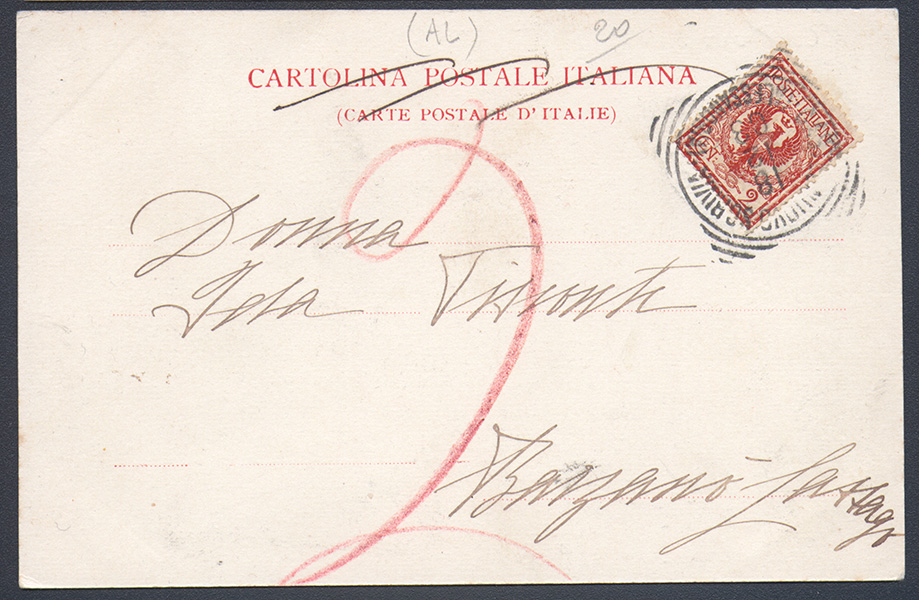 (AL) 20
CARTOLINA POSTALE ITALIANA
(CARTE POSTALE D'ITALIE)
POSTE ITALIANE
2
Donna
Ida Visconti
Barzanò Cassago